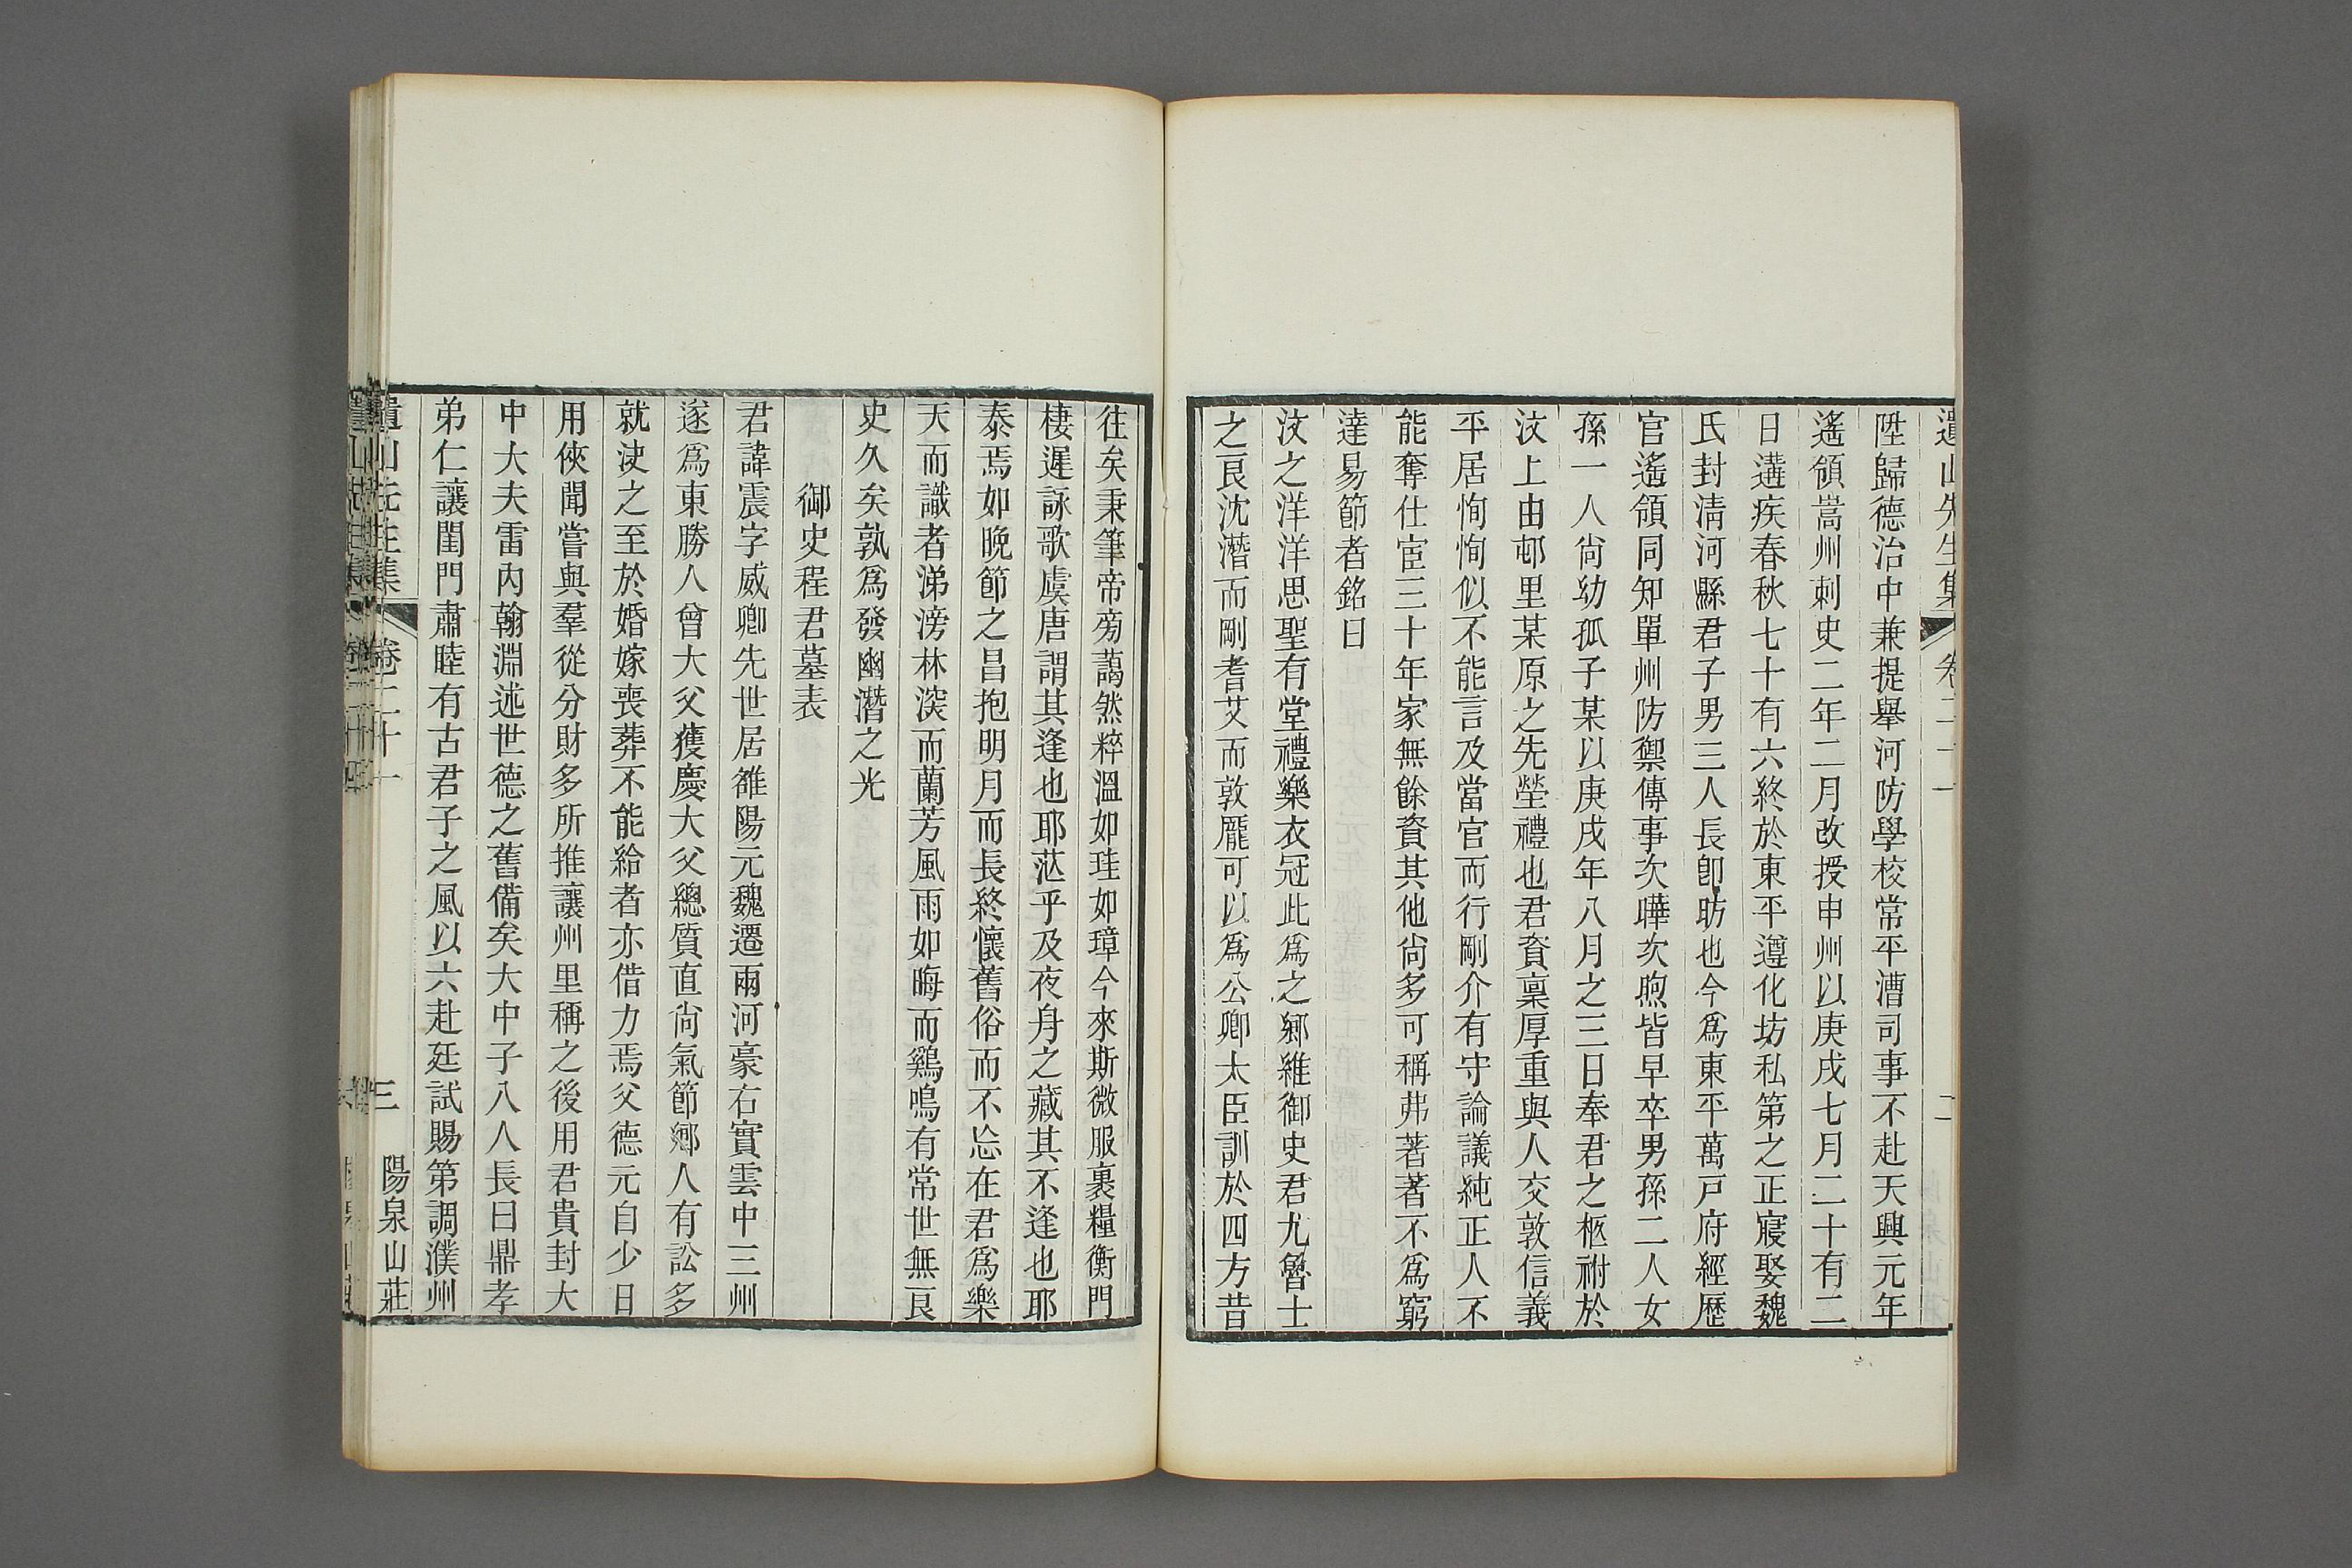 遺山先生集 卷二十一 二
陞歸德治中兼提舉河防學校常平漕司事不赴天興元年
遙領嵩州刺史二年二月改授申州以庚戌七月二十有二
日遘疾春秋七十有六終於東平遵化坊私第之正寢娶魏
氏封清河縣君子男三人長卽昉也今爲東平萬戸府經歷
官遙領同知單州防禦傳事次曄次煦皆早卒男孫二人女
孫一人尙幼孤子某以庚戌年八月之三日奉君之柩祔於
汶上由邨里某原之先塋禮也君資稟厚重與人交敦信義
平居恂恂似不能言及當官而行剛介有守論議純正人不
能奪仕宦三十年家無餘資其他尙多可稱弗著著不爲窮
達易節者銘曰
汶之洋洋思聖有堂禮樂衣冠此爲之鄉維御史君尤魯士
之良沈潛而剛耆艾而敦厖可以爲公卿太臣訓於四方昔
往矣秉筆帝旁藹然粹溫如珪如璋今來斯微服裹糧衡門
棲遲詠歌虞唐謂其逢也耶沤乎及夜身之藏其不逢也耶
泰焉如晚節之昌抱明月而長終懷舊俗而不忘在君爲樂
天而識者涕滂林深而蘭芳風雨如晦而鷄鳴有常世無良
史久矣孰爲發幽潛之光
御史程君墓表
君諱震字威卿先世居雒陽元魏遷兩河豪右實雲中三州
遂爲東勝人曾大父獲慶大父總質直尙氣節鄉人有訟多
就決之至於婚嫁喪葬不能給者亦借力焉父德元自少日
用俠聞嘗與羣從分財多所推讓州里稱之後用君貴封大
中大夫雷內翰淵述世德之舊備矣大中子八人長曰鼎孝
弟仁讓閨門肅睦有古君子之風以六赴廷試賜第調濮州
遺山先生集 卷二十一 三 陽泉山莊